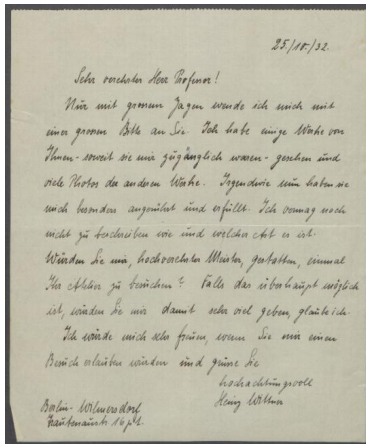 25./10./32.
Sehr verehrter Herr Professor!
Nur mit grossem Zagen wende ich mich mit
einer grossen Bitte an Sie. Ich habe einige Werke von
Ihnen - soweit sie mir zugänglich waren - gesehen und
viele Photos der anderen Werke. Irgendwie nun haben sie
mich besonders angerührt und erfüllt. Ich vermag noch
nicht zu beschreiben wie und welcher Art es ist.
Würden Sie mir, hochverehrter Meister, gestatten, einmal
Ihr Atelier zu besuchen? Falls das überhaupt möglich
ist, würden Sie mir damit sehr viel geben, glaube ich.
Ich würde mich sehr freuen, wenn Sie mir einen
Besuch erlauben würden und grüsse Sie
hochachtungsvoll
Heinz Wittner
Berlin-Wilmersdorf
Trautenaustr. 16